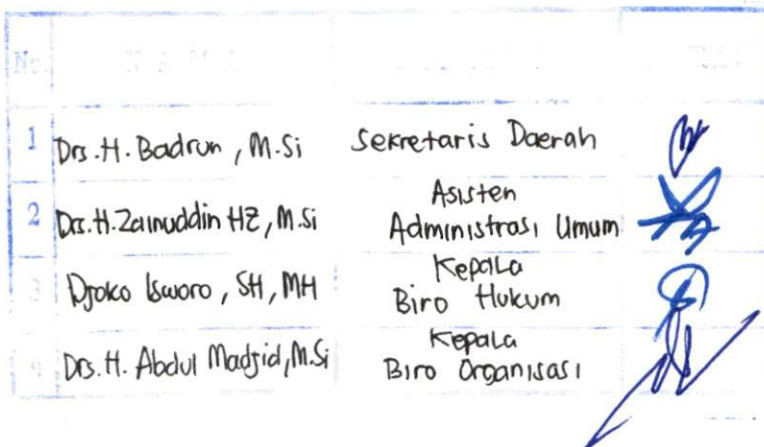 No N A M A
1 Drs. H. Badrun, M.Si Sekretaris Daerah
2 Drs. H. Zainuddin HZ, M.Si Asisten
Administrasi Umum
3 Djoko Isworo, SH, MH Kepala
Biro Hukum
Drs. H. Abdul Madjid, M.Si Kepala
Biro Organisasi